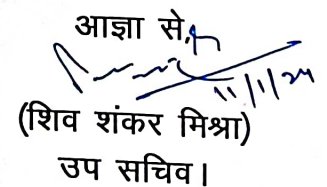 आज्ञा से,
11/1/24
(शिव शंकर मिश्रा)
उप सचिव।